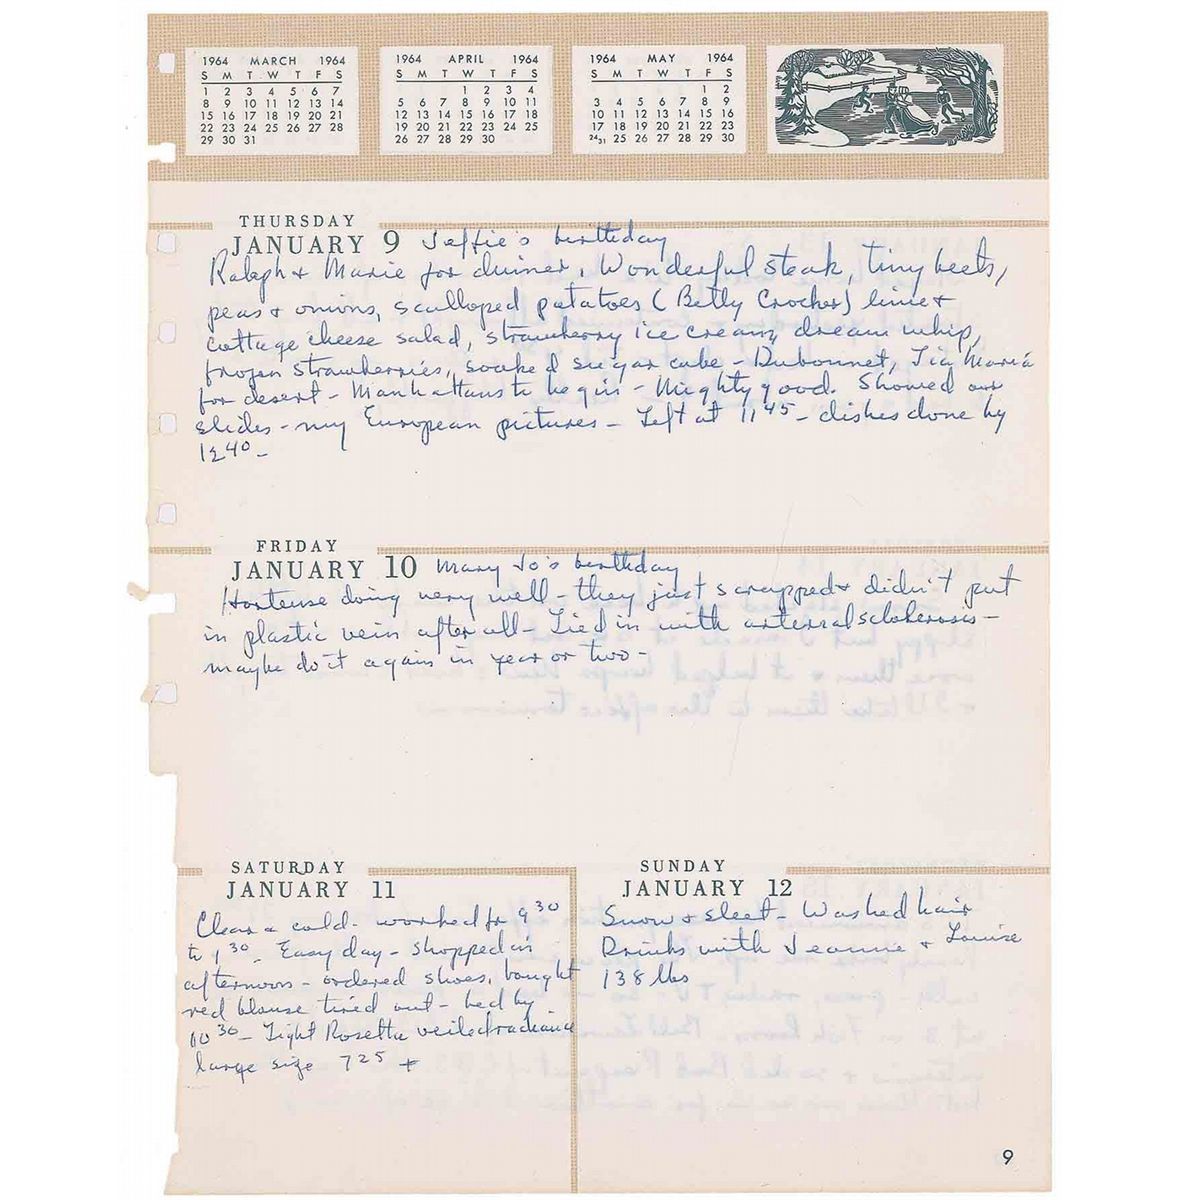 1964 MARCH 1964
S M T W T F S
1 2 3 4 5 6 7
8 9 10 11 12 13 14
15 16 17 18 19 20 21
22 23 24 25 26 27 28
29 30 31
1964 APRIL 1964
S M T W T F S
1 2 3 4
5 6 7 8 9 10 11
12 13 14 15 16 17 18
19 20 21 22 23 24 25
26 27 28 29 30
1964 MAY 1964
S M T W T F S
1 2
3 4 5 6 7 8 9
10 11 12 13 14 15 16
17 18 19 20 21 22 23
24/31 25 26 27 28 29 30
THURSDAY
JANUARY 9 Jeffie's birthday
Ralph + Marie for dinner, Wonderful steak, tiny beets,
peas + onions, scalloped potatoes (Betty Crocker) lime +
cottage cheese salad, strawberry ice cream, dream whip,
frozen strawberries, soaked sugar cube - Dubonnet, Tia Maria
for desert - Manhattans to begin - Mighty good. Showed our
slides - my European pictures - Left at 11 45 - dishes done by
12 40 -
FRIDAY
JANUARY 10 Mary Jo's birthday
Hortense doing very well - they just scrapped + didn't put
in plastic vein after all - Tied in with
maybe do it again in year or two -
SATURDAY
JANUARY 11
Clear + cold - worked for 9 30
to 1 30 - Easy day - shopped in
afternoon - ordered shoes, bought
red blouse tired out - bed by
10 30 - Light Rosetta veiled radiance
large size 7 25 +
SUNDAY
JANUARY 12
Snow + sleet - Washed hair
Drinks with Jeannie + Louise
138 lbs
9